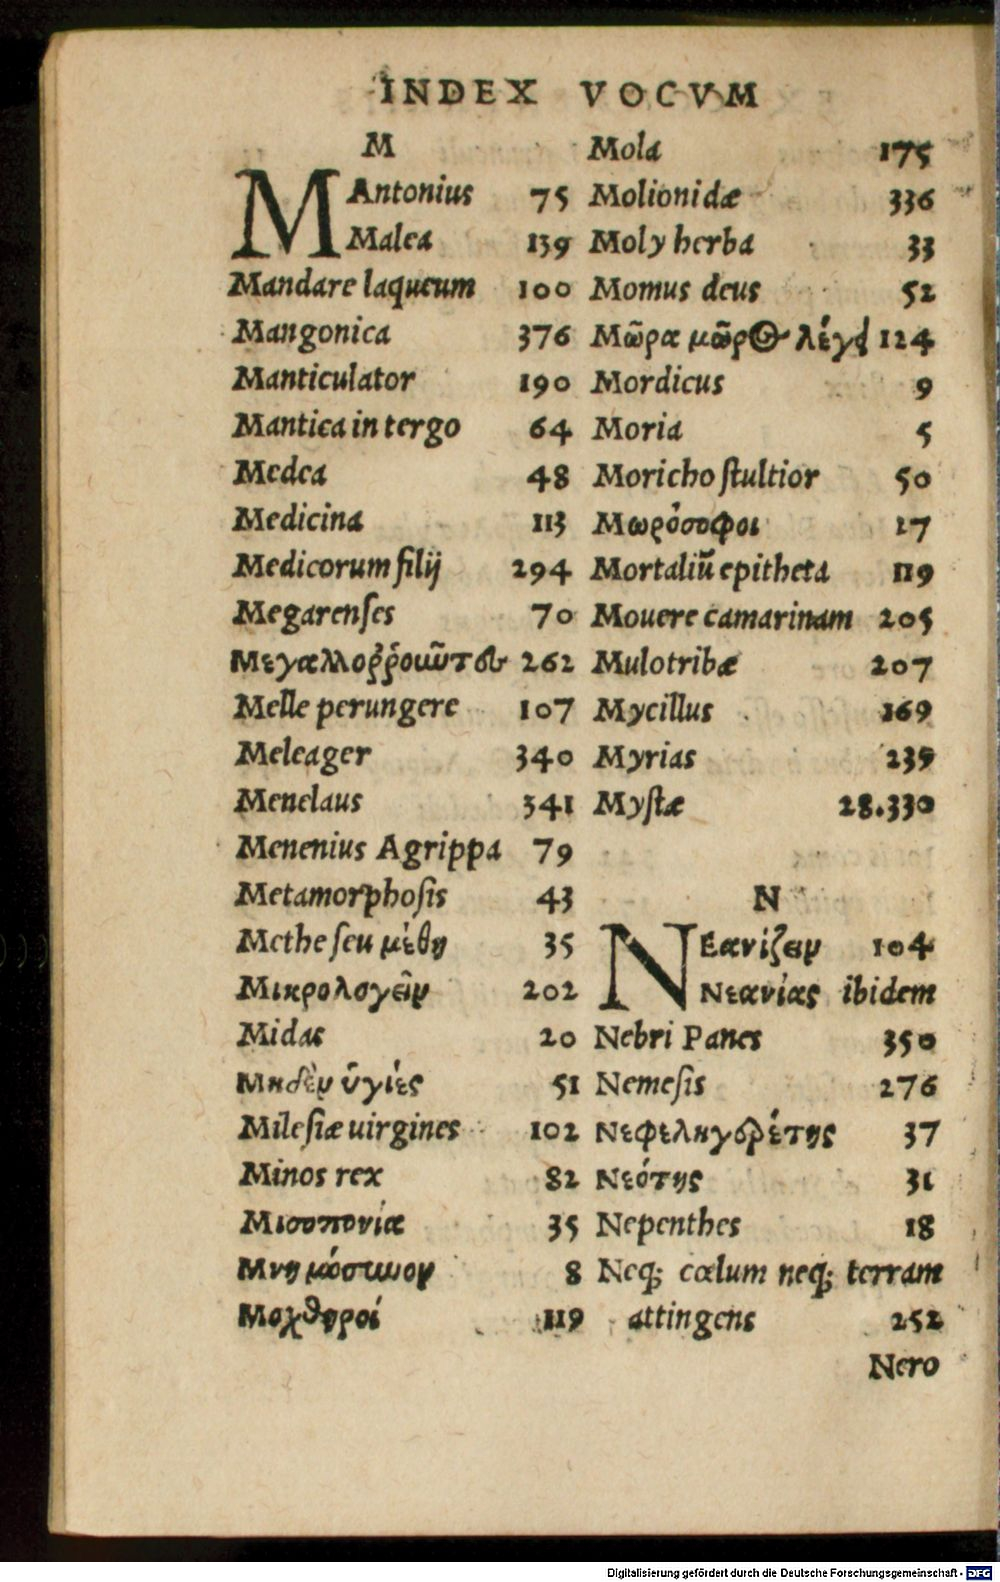 INDEX VOCVM
M
MAntonius 75
Malea 139
Mandare laqueum 100
Mangonica 376
Manticulator 190
Mantica in tergo 64
Medea 48
Medicina 113
Medicorum filij 294
Megarenses 70
262
Melle perungere 107
Meleager 340
Menelaus 341
Menenius Agrippa 79
Metamorphosis 43
Methe seu μέθη 35
Μικρολογεῖν 202
Midas 20
Μηδὲν ὑγιές 51
Milesiæ uirgines 102
Minos rex 82
Μισοπονία 35
Μνημόσυνον 8
Μοχθηροί 119
Mola 175
Molionidæ 336
Moly herba 33
Momus deus 52
Μῶρα μῶρος λέγει 124
Mordicus 9
Moria 5
Moricho stultior 50
Μωρόσοφοι 17
Mortaliũ epitheta 119
Mouere camarinam 205
Mulotribæ 207
Mycillus 169
Myrias 239
Mystæ 28.330
N
ΝΕανίζειν 104
Νεανίας ibidem
Nebri Panes 350
Nemesis 276
Νεφεληγερέτης 37
Νεότης 31
Nepenthes 18
Neq; cœlum neq; terram
attingens 252
Nero
Digitalisierung gefördert durch die Deutsche Forschungsgemeinschaft - DFG